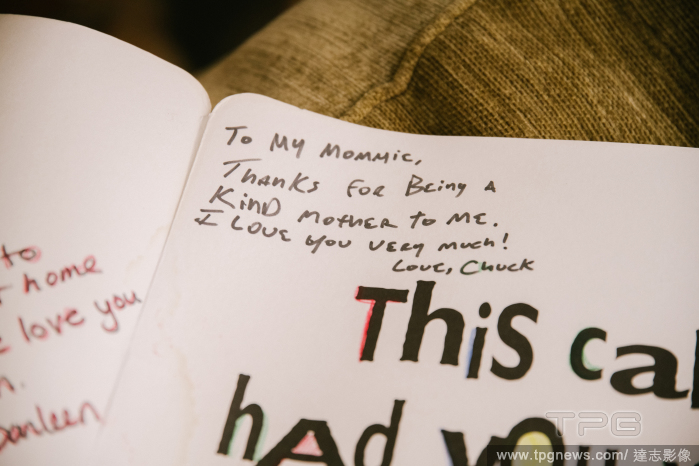 to
home
love you
To My Mommie,
Thanks for Being a
Kind Mother to me.
I Love you very much!
Love, Chuck
This
had you
TPG
www.tpgnews.com/ 達志影像